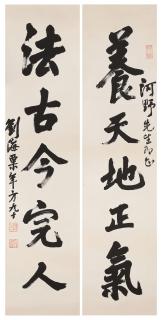 養天地正氣
河野先生即正
法古今完人
劉海粟年方九十